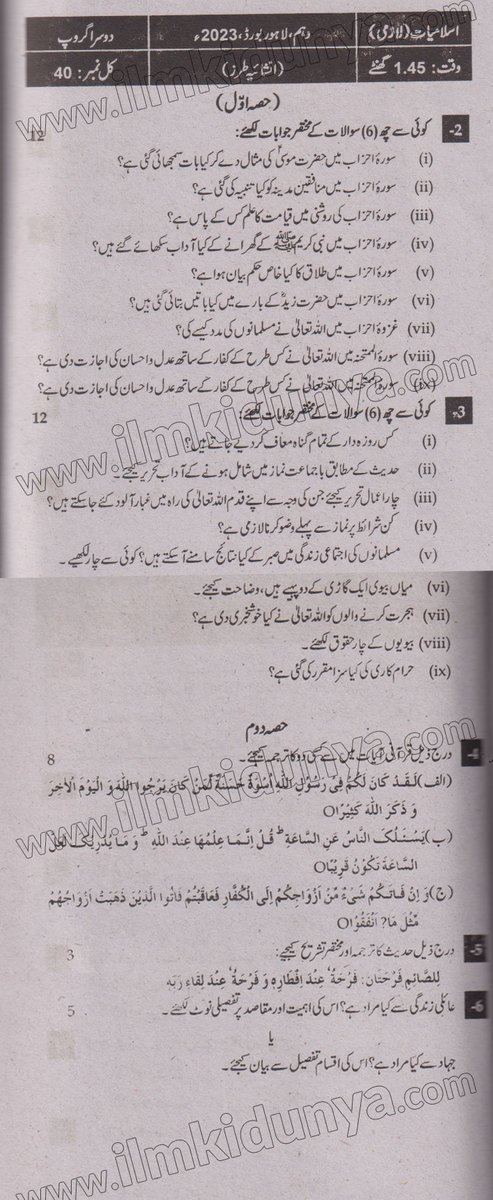 اسلامیات (لازمی) دہم، لاہور بورڈ، 2023ء دوسرا گروپ
وقت: 1.45 گھنٹے (انشائیہ طرز) کل نمبر: 40
(حصہ اوّل)
2- کوئی سے چھ (6) سوالات کے مختصر جوابات لکھئے: 12
(i) سورۂ احزاب میں حضرت موسیٰؑ کی مثال دے کر کیا بات سمجھائی گئی ہے؟
(ii) سورۂ احزاب میں منافقین مدینہ کو کیا تنبیہ کی گئی ہے؟
(iii) سورۂ احزاب کی روشنی میں قیامت کا علم کس کے پاس ہے؟
(iv) سورۂ احزاب میں نبی کریم ﷺ کے گھرانے کے کیا آداب سکھائے گئے ہیں؟
(v) سورۂ احزاب میں طلاق کا کیا خاص حکم بیان ہوا ہے؟
(vi) سورۂ احزاب میں حضرت زیدؓ کے بارے میں کیا باتیں بتائی گئی ہیں؟
(vii) غزوۂ احزاب میں اللہ تعالیٰ نے مسلمانوں کی مدد کیسے کی؟
(viii) سورۃ الممتحنہ میں اللہ تعالیٰ نے کس طرح کے کفار کے ساتھ عدل و احسان کی اجازت دی ہے؟
(ix) سورۃ الممتحنہ میں اللہ تعالیٰ نے کس طرح کے کفار کے ساتھ عدل و احسان کی اجازت دی ہے؟
3- کوئی سے چھ (6) سوالات کے مختصر جوابات لکھئے: 12
(i) کس روزہ دار کے تمام گناہ معاف کر دیے جاتے ہیں؟
(ii) حدیث کے مطابق باجماعت نماز میں شامل ہونے کے آداب تحریر کیجئے۔
(iii) چار اعمال تحریر کیجئے جن کی وجہ سے اپنے قدم اللہ تعالیٰ کی راہ میں غبار آلود کئے جا سکتے ہیں؟
(iv) کن شرائط پر نماز سے پہلے وضو کرنا لازمی ہے؟
(v) مسلمانوں کی اجتماعی زندگی میں صبر کے کیا نتائج سامنے آ سکتے ہیں؟ کوئی سے چار لکھیے۔
(vi) میاں بیوی ایک گاڑی کے دو پہیے ہیں، وضاحت کیجئے۔
(vii) ہجرت کرنے والوں کو اللہ تعالیٰ نے کیا خوشخبری دی ہے؟
(viii) بیویوں کے چار حقوق لکھئے۔
(ix) حرام کاری کی کیا سزا مقرر کی گئی ہے؟
حصہ دوم
4- درج ذیل قرآنی آیات میں سے کسی دو کا ترجمہ کیجئے۔ 8
(الف) لَقَدْ كَانَ لَكُمْ فِیْ رَسُوْلِ اللّٰهِ اُسْوَةٌ حَسَنَةٌ لِّمَنْ كَانَ یَرْجُوا اللّٰهَ وَ الْیَوْمَ الْاٰخِرَ
وَ ذَكَرَ اللّٰهَ كَثِیْرًاO
(ب) یَسْـَٔلُكَ النَّاسُ عَنِ السَّاعَةِ ؕ قُلْ اِنَّمَا عِلْمُهَا عِنْدَ اللّٰهِ ؕ وَ مَا یُدْرِیْكَ لَعَلَّ
السَّاعَةَ تَكُوْنُ قَرِیْبًاO
(ج) وَ اِنْ فَاتَكُمْ شَیْءٌ مِّنْ اَزْوَاجِكُمْ اِلَى الْكُفَّارِ فَعَاقَبْتُمْ فَاٰتُوا الَّذِیْنَ ذَهَبَتْ اَزْوَاجُهُمْ
مِّثْلَ مَا? اَنْفَقُوْاO
5- درج ذیل حدیث کا ترجمہ اور مختصر تشریح کیجیے: 3
لِلصَّائِمِ فَرْحَتَانِ: فَرْحَةٌ عِنْدَ اِفْطَارِهٖ وَ فَرْحَةٌ عِنْدَ لِقَاءِ رَبِّهٖ
6- عائلی زندگی سے کیا مراد ہے؟ اس کی اہمیت اور مقاصد پر تفصیلی نوٹ لکھئے۔ 5
یا
جہاد سے کیا مراد ہے؟ اس کی اقسام تفصیل سے بیان کیجئے۔
www.ilmkidunya.com
www.ilmkidunya.com
www.ilmkidunya.com
www.ilmkidunya.com